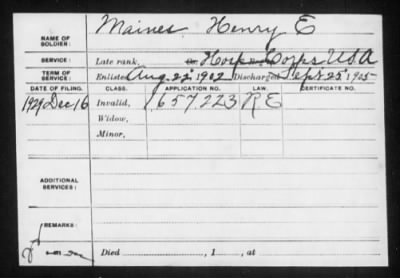 NAME OF SOLDIER: Maines, Henry E
SERVICE: Late rank, Hosp Corps USA
TERM OF SERVICE: Enlisted Aug. 22, 1902, Discharged Sept 25, 1905
DATE OF FILING. CLASS. APPLICATION NO. LAW. CERTIFICATE NO.
1929 Dec 16 Invalid, 1657223 R E
Widow,
Minor,
ADDITIONAL SERVICES:
REMARKS:
Died , 1 , at